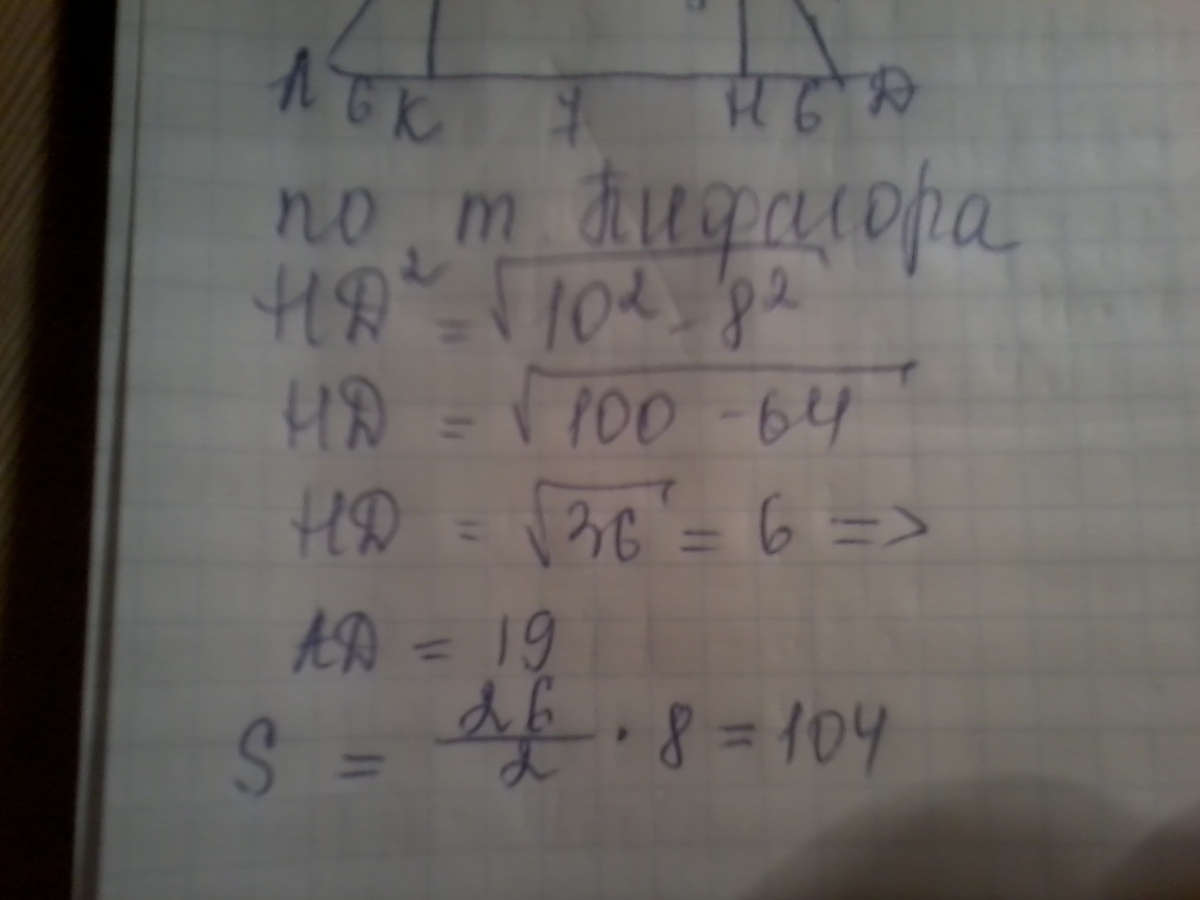 А 6 К 7 Н 6 D
по т. Пифагора
HD² = √10² - 8²
HD = √100 - 64
HD = √36 = 6 =>
AD = 19
S = 26/2 · 8 = 104